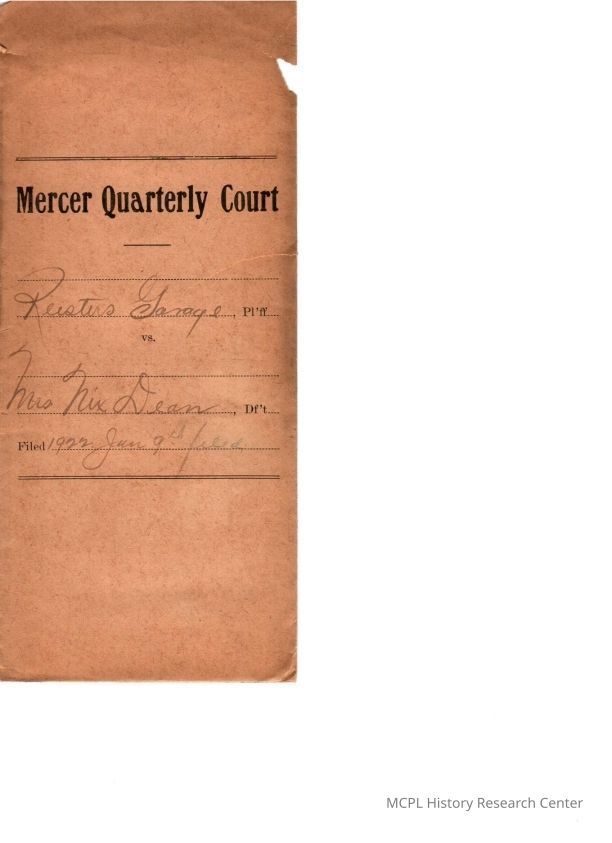 Mercer Quarterly Court
Reister's Garage, Pl'ff
vs.
Mrs Nix Dean, Df't
Filed 1922 Jan 9th filed
MCPL History Research Center